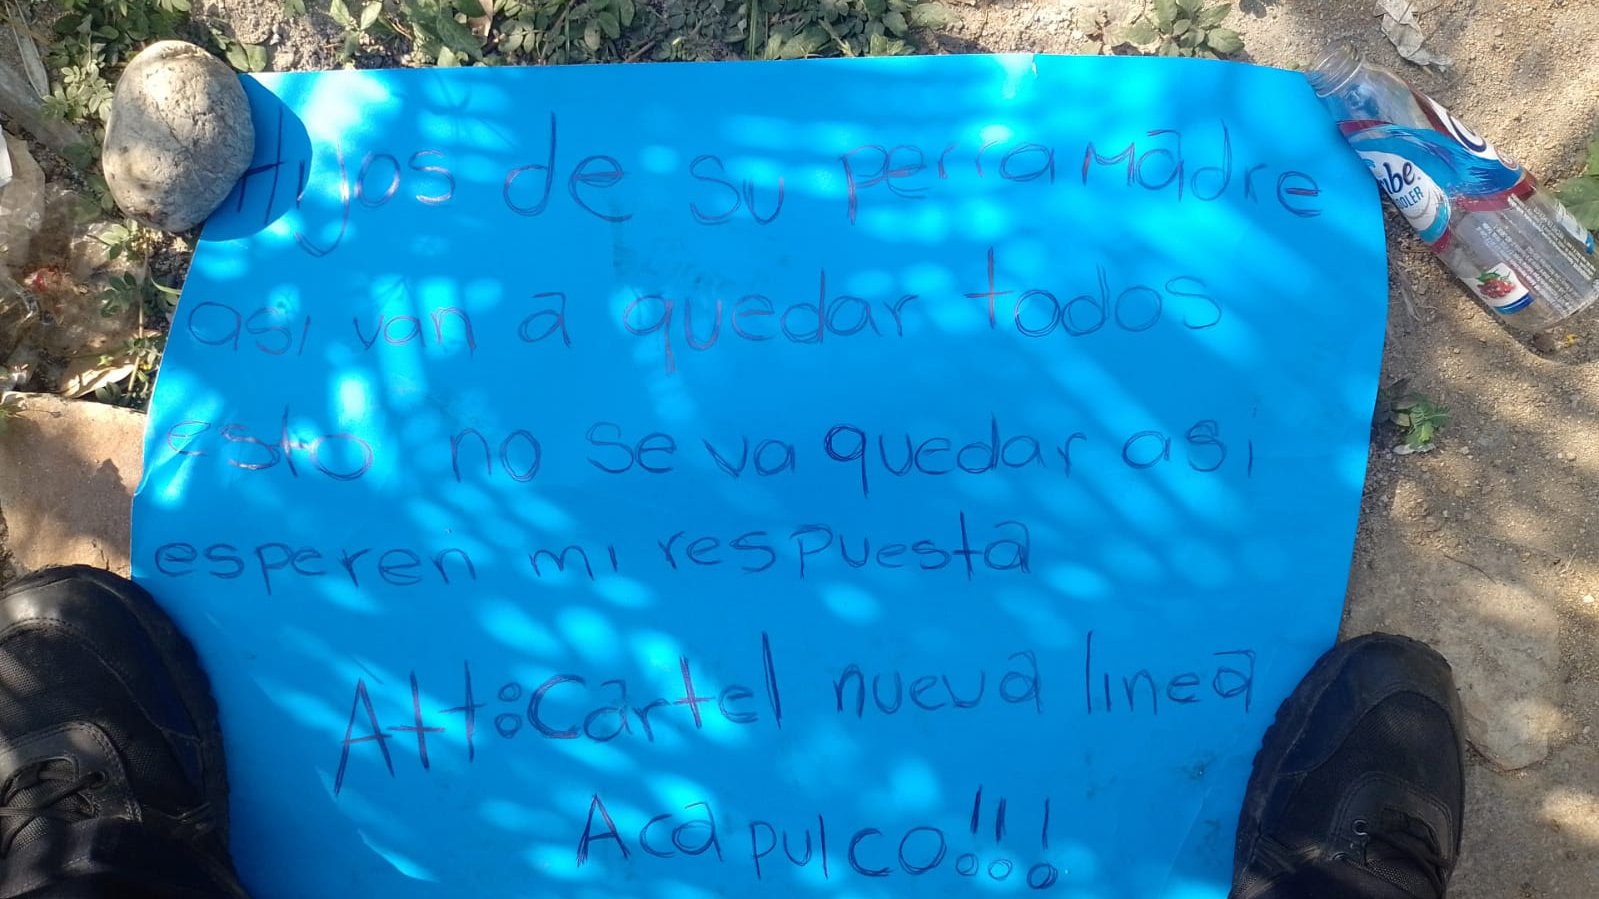 Hijos de su perra madre
asi van a quedar todos
esto no se va quedar asi
esperen mi respuesta
Att:Cartel nueva linea
Acapulco!!!
ube
OLER